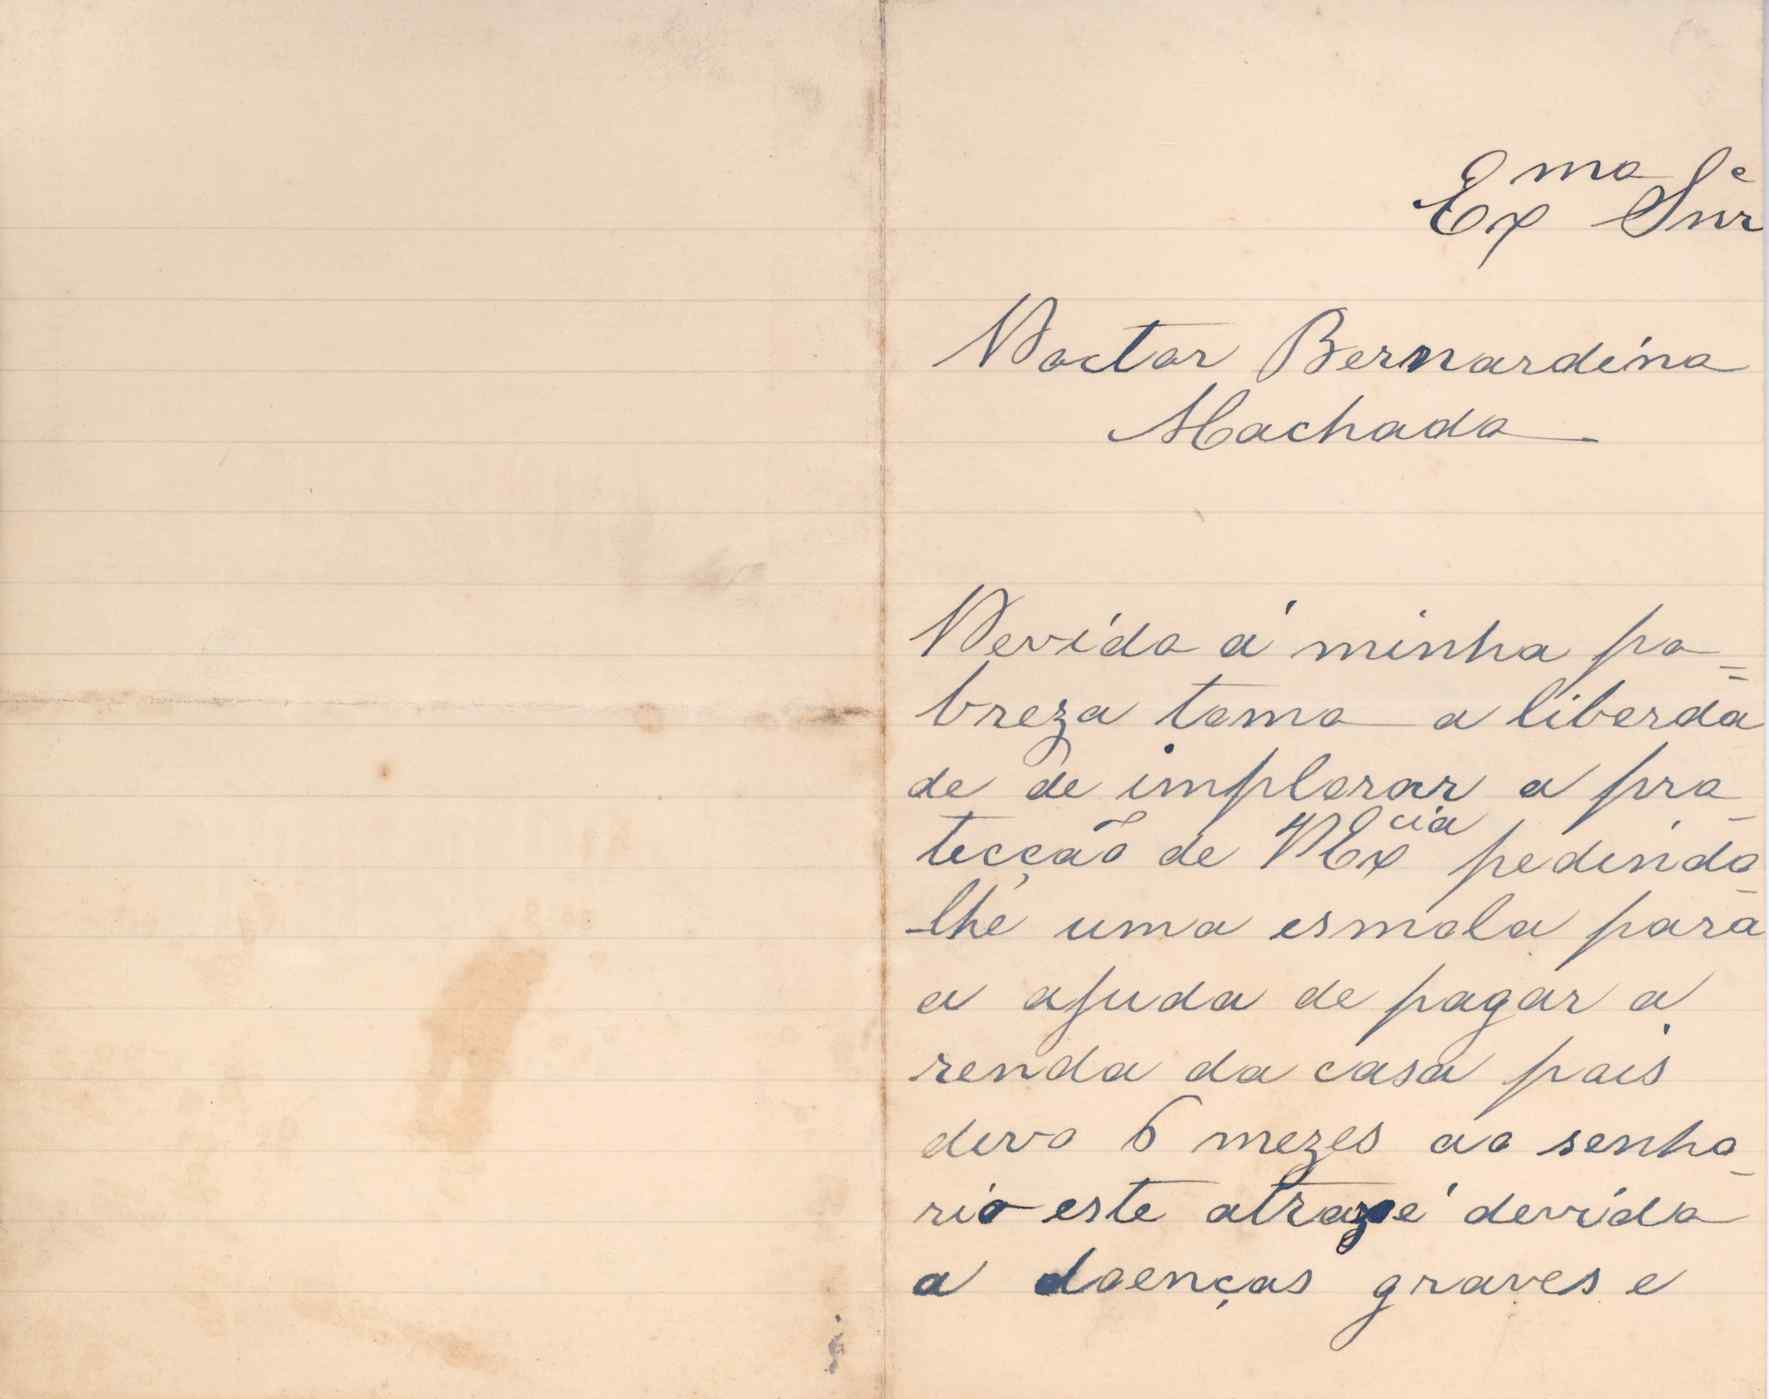 Exmo Snre
Doctor Bernardino
Machado
Devido á minha po=
breza tomo a liberda
de de implorar a pro-
tecção de VExcia pedindo-
-lhe uma esmola para
a ajuda de pagar a
renda da casa pois
devo 6 mezes ao senho-
rio este atrazo é devido
a doenças graves e